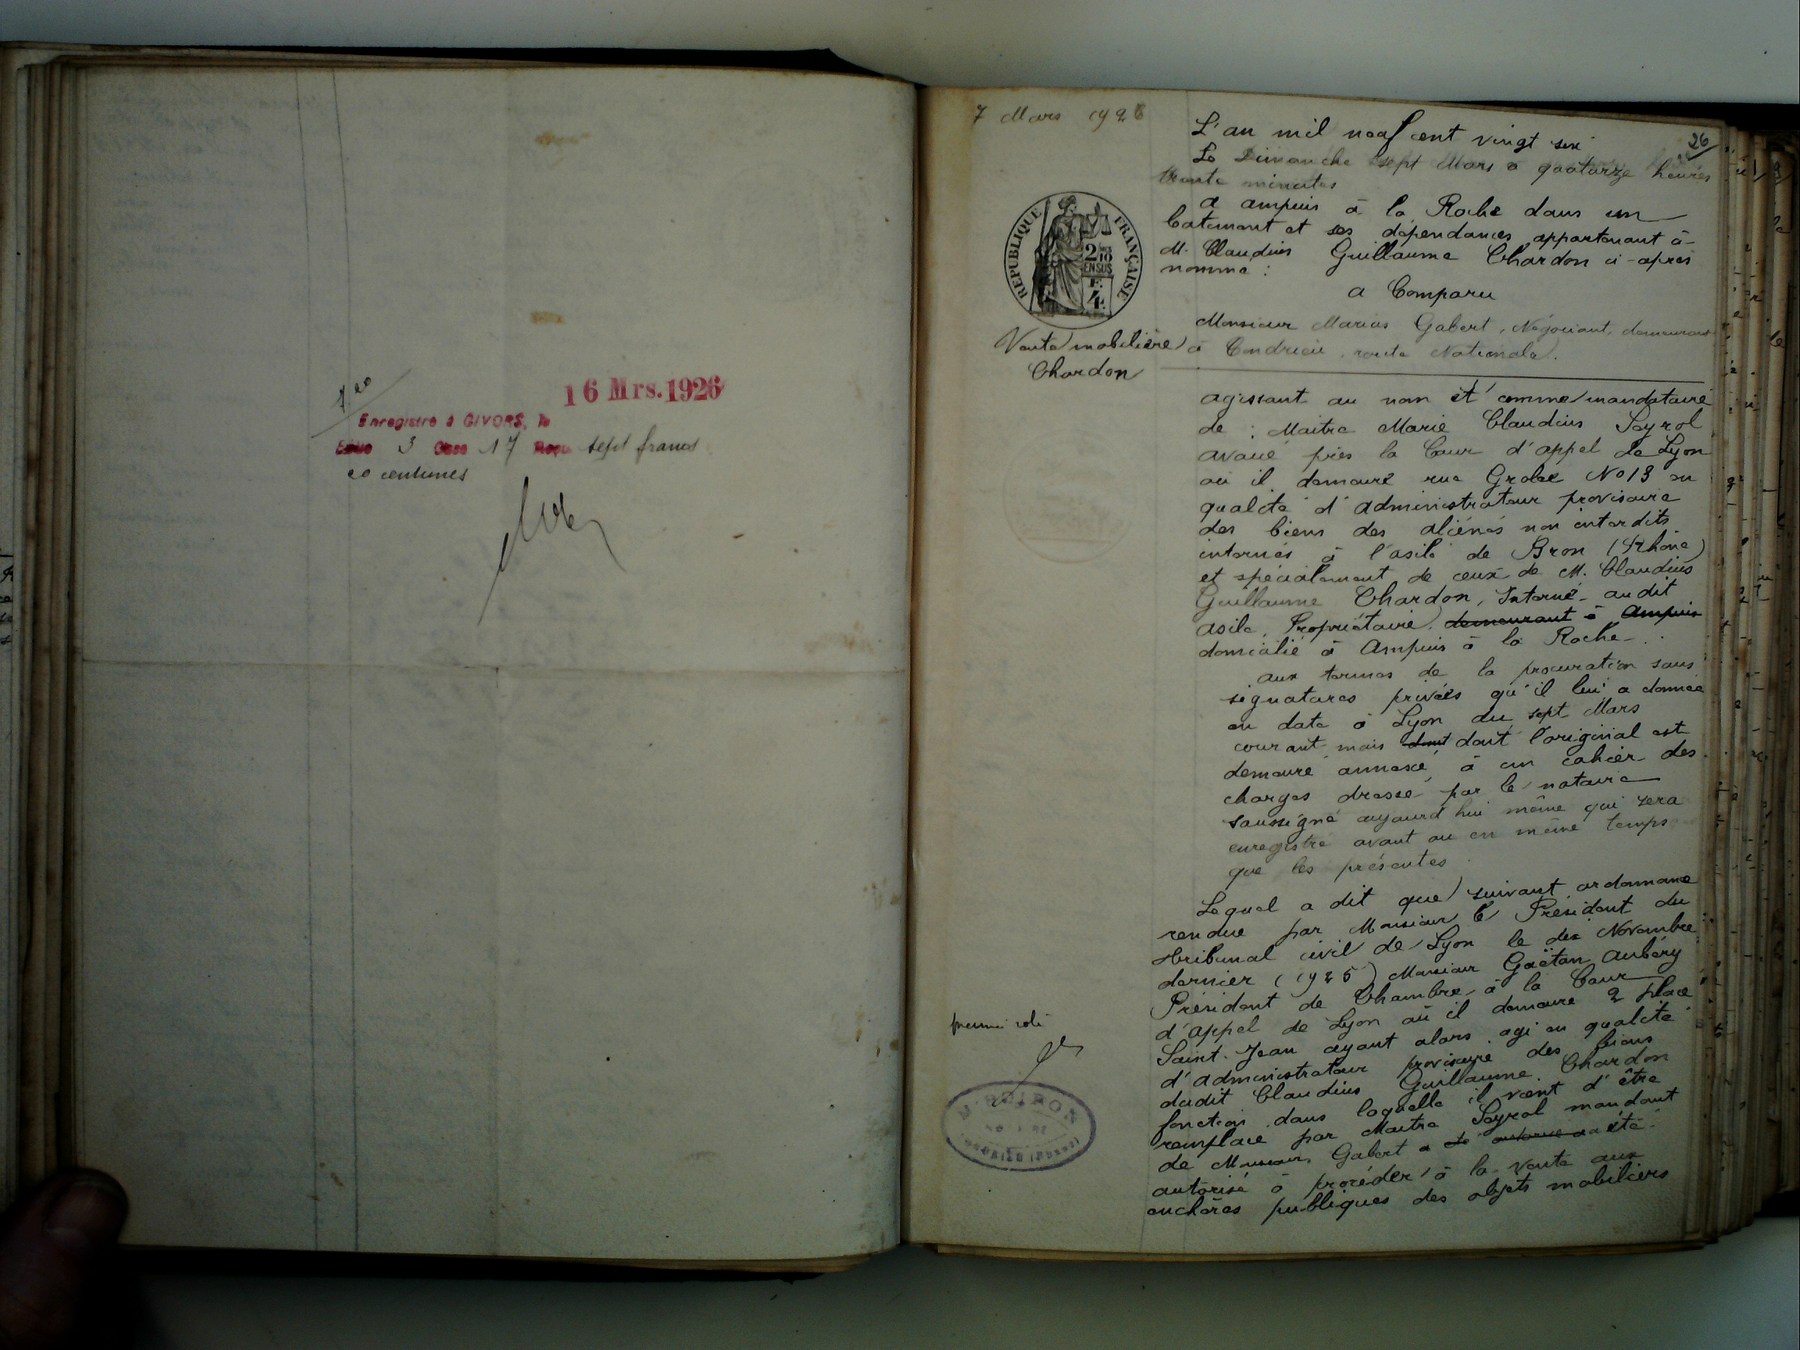 16 Mrs. 1926
Enregistré à GIVORS, le
3 Case 17 Reçu sept francs
20 centimes
7 Mars 1926
26
RÉPUBLIQUE FRANÇAISE
2/10
EN SUS
F.
4
Vente mobilière
Chardon
L'an mil neuf cent vingt six
Le Dimanche sept Mars à quatorze heures
trente minutes
A Ampuis à la Roche dans un
batiment et ses dépendances appartenant à
M. Claudius Guillaume Chardon ci-après
nommé :
a Comparu
Monsieur Marius Gabert, Négociant, demeurant
à Condrieu, route Nationale.
agissant au nom et comme mandataire
de : Maitre Marie Claudius Seyrol
avoué près la Cour d'appel de Lyon
où il demeure rue Grolée No 13 en
qualité d'administrateur provisoire
des biens des aliénés non interdits
internés à l'asile de Bron (Rhône)
et spécialement de ceux de M. Claudius
Guillaume Chardon, Interné audit
asile, Propriétaire, demeurant à Ampuis
domicilié à Ampuis à la Roche.
aux termes de la procuration sous
signatures privées qu'il lui a donnée
en date à Lyon du sept Mars
courant mais dont dont l'original est
demeuré annexé à un cahier des
charges dressé par le notaire
soussigné aujourd'hui même qui sera
enregistré avant ou en même temps
que les présentes
Lequel a dit que suivant ordonnance
rendue par Monsieur le Président du
tribunal civil de Lyon le dix Novembre
dernier (1925) Monsieur Gaëtan Aubéry
Président de Chambre à la Cour
d'appel de Lyon où il demeure 2 place
Saint-Jean ayant alors agi en qualité
d'administrateur provisoire des biens
dudit Claudius Guillaume Chardon
fonction dans laquelle il vient d'être
remplacé par Maitre Seyrol mandant
de Monsieur Gabert a été autorisé a été
autorisé à procéder à la vente aux
enchères publiques des objets mobiliers
premier rôle